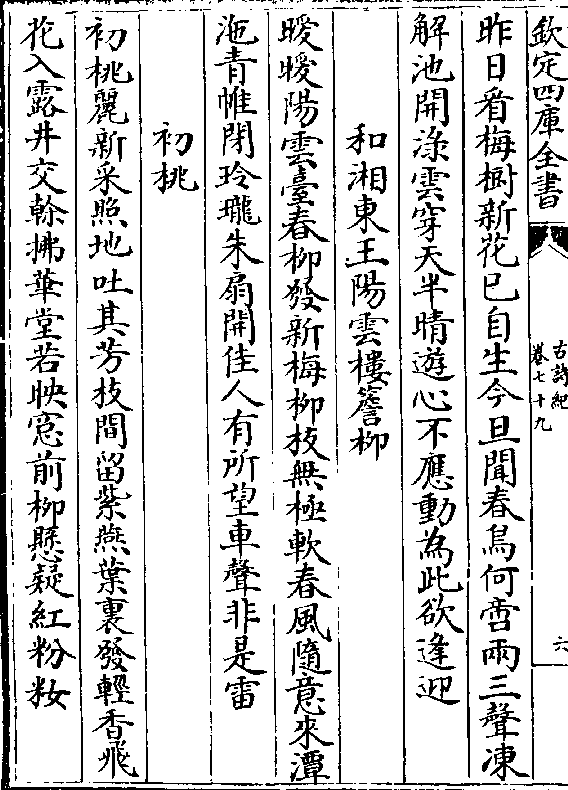 欽定四庫全書
古詩紀
卷七十九
六
昨日看梅樹新花已自生今旦聞春鳥何啻兩三聲凍
解池開渌雲穿天半晴遊心不應動為此欲逢迎
和湘東王陽雲樓簷柳
曖曖陽雲臺春柳發新梅柳枝無極軟春風隨意來潭
沲青帷閉玲瓏朱扇開佳人有所望車聲非是雷
初桃
初桃麗新采照地吐其芳枝間留紫燕葉裏發輕香飛
花入露井交榦拂華堂若映窻前柳懸疑紅粉粧